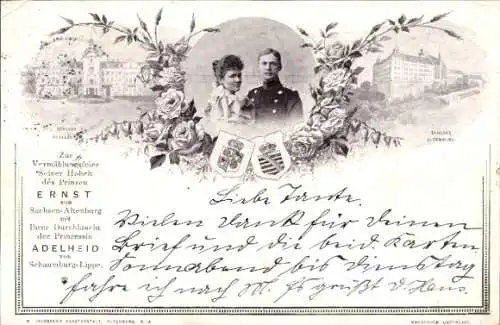 SCHLOSS
SCHLOSS
ALTENBURG
Zur
Vermählungsfeier
Seiner Hoheit
des Prinzen
ERNST
von
Sachsen-Altenburg
mit
Ihrer Durchlaucht
der Prinzessin
ADELHEID
von
Schaumburg-Lippe.
Liebe Tante.
Vielen Dank für Deinen
Brief und die beid. Karten
Sonnabend bis Dienstag
fahre ich nach M. Es grüßt d. Hans.
KUNSTANSTALT, ALTENBURG, S.-A.
NACHDRUCK VERBOTEN.